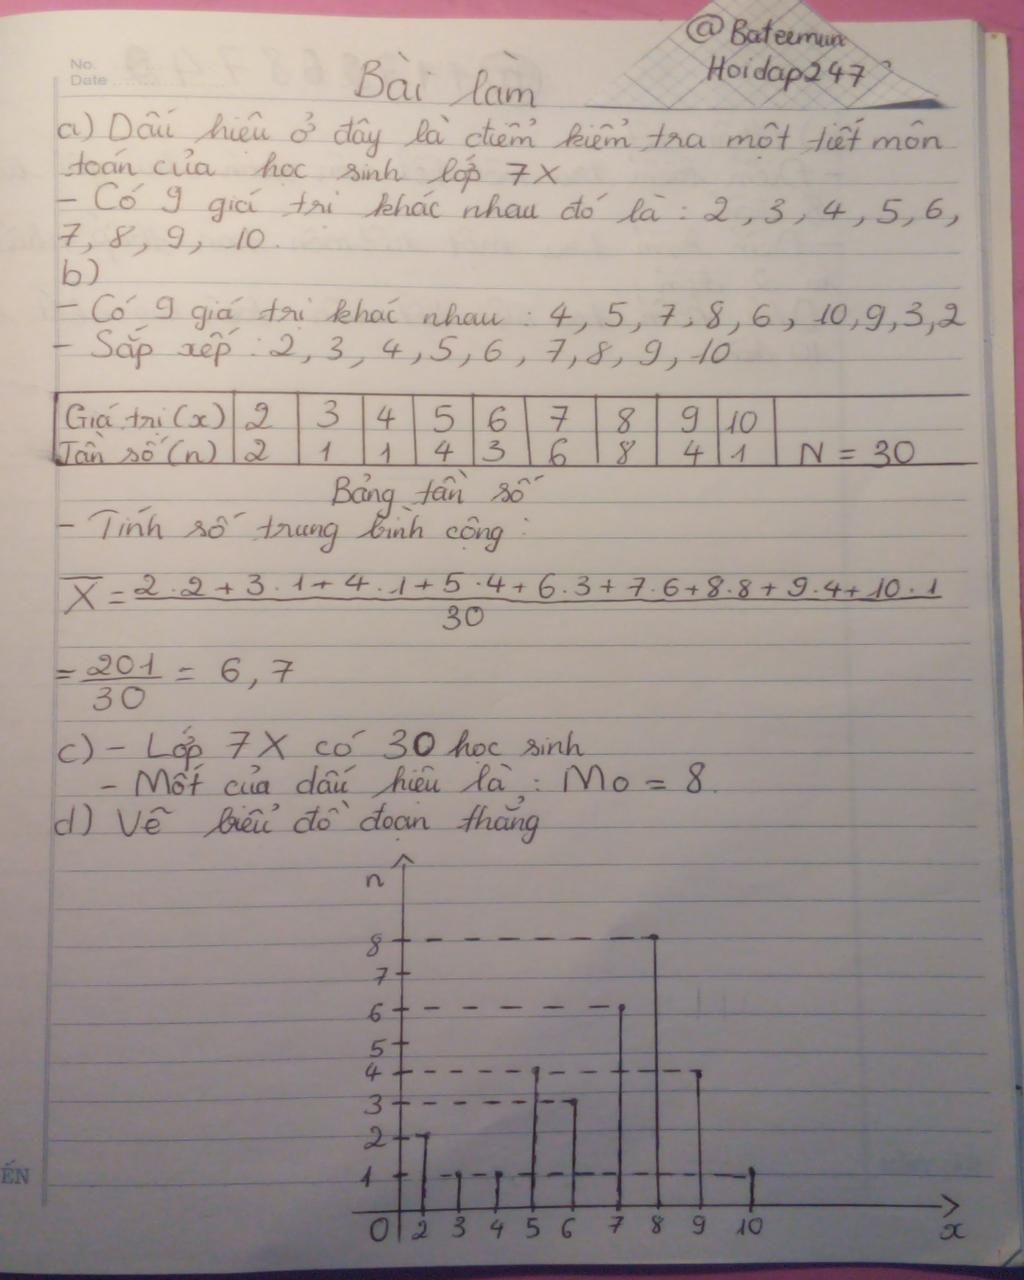 @Bateemun
Hoidap247
No.
Date
Bài làm
a) Dấu hiệu ở đây là điểm kiểm tra một tiết môn
toán của học sinh lớp 7X
- Có 9 giá trị khác nhau đó là : 2, 3, 4, 5, 6,
7, 8, 9, 10.
b)
- Có 9 giá trị khác nhau : 4, 5, 7, 8, 6, 10, 9, 3, 2
- Sắp xếp : 2, 3, 4, 5, 6, 7, 8, 9, 10
Giá trị (x) 2 3 4 5 6 7 8 9 10
Tần số (n) 2 1 1 4 3 6 8 4 1 N = 30
Bảng tần số
- Tính số trung bình cộng :
X̅ = 2.2 + 3.1 + 4.1 + 5.4 + 6.3 + 7.6 + 8.8 + 9.4 + 10.1
30
= 201/30 = 6,7
c) - Lớp 7X có 30 học sinh
- Mốt của dấu hiệu là : Mo = 8.
d) Vẽ biểu đồ đoạn thẳng
n
8
7
6
5
4
3
2
1
0 2 3 4 5 6 7 8 9 10 x
ẾN